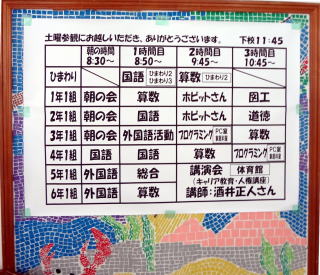 土曜参観にお越しいただき、ありがとうございます。 下校11:45
朝の時間 8:30～ 1時間目 8:50～ 2時間目 9:45～ 3時間目 10:45～
ひまわり 国語 ひまわり2 ひまわり3 算数 ひまわり2
1年1組 朝の会 算数 ホピットさん 図工
2年1組 朝の会 国語 ホピットさん 道徳
3年1組 朝の会 外国語活動 プログラミング PC室 算数
4年1組 国語 国語 算数 プログラミング PC室
5年1組 外国語 総合 講演会 体育館
(キャリア教育・人権講座)
6年1組 外国語 算数 講師:酒井正人さん